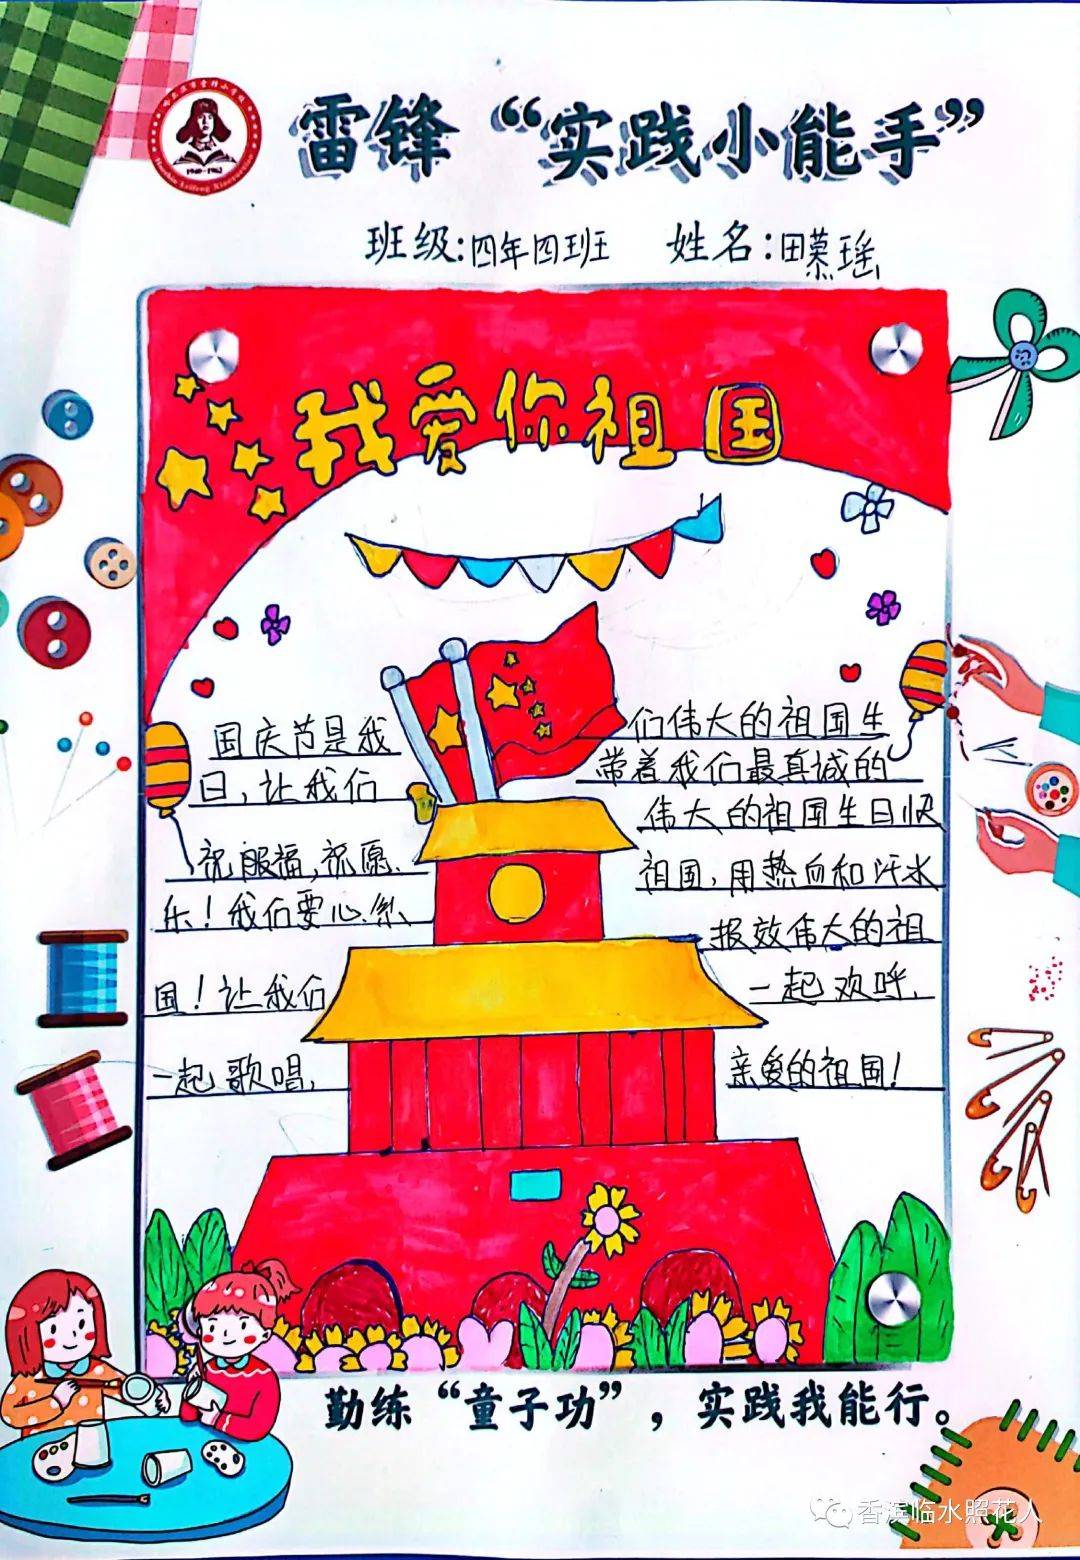 雷锋“实践小能手”
班级:四年四班 姓名:田慕瑶
我爱你祖国
国庆节是我们伟大的祖国生
日,让我们带着我们最真诚的
祝服福,祝愿、伟大的祖国生日快
乐!我们要心系祖国,用热血和汗水
报效伟大的祖
国!让我们一起欢呼、
一起歌唱、亲爱的祖国!
勤练“童子功”,实践我能行。
香滨临水照花人